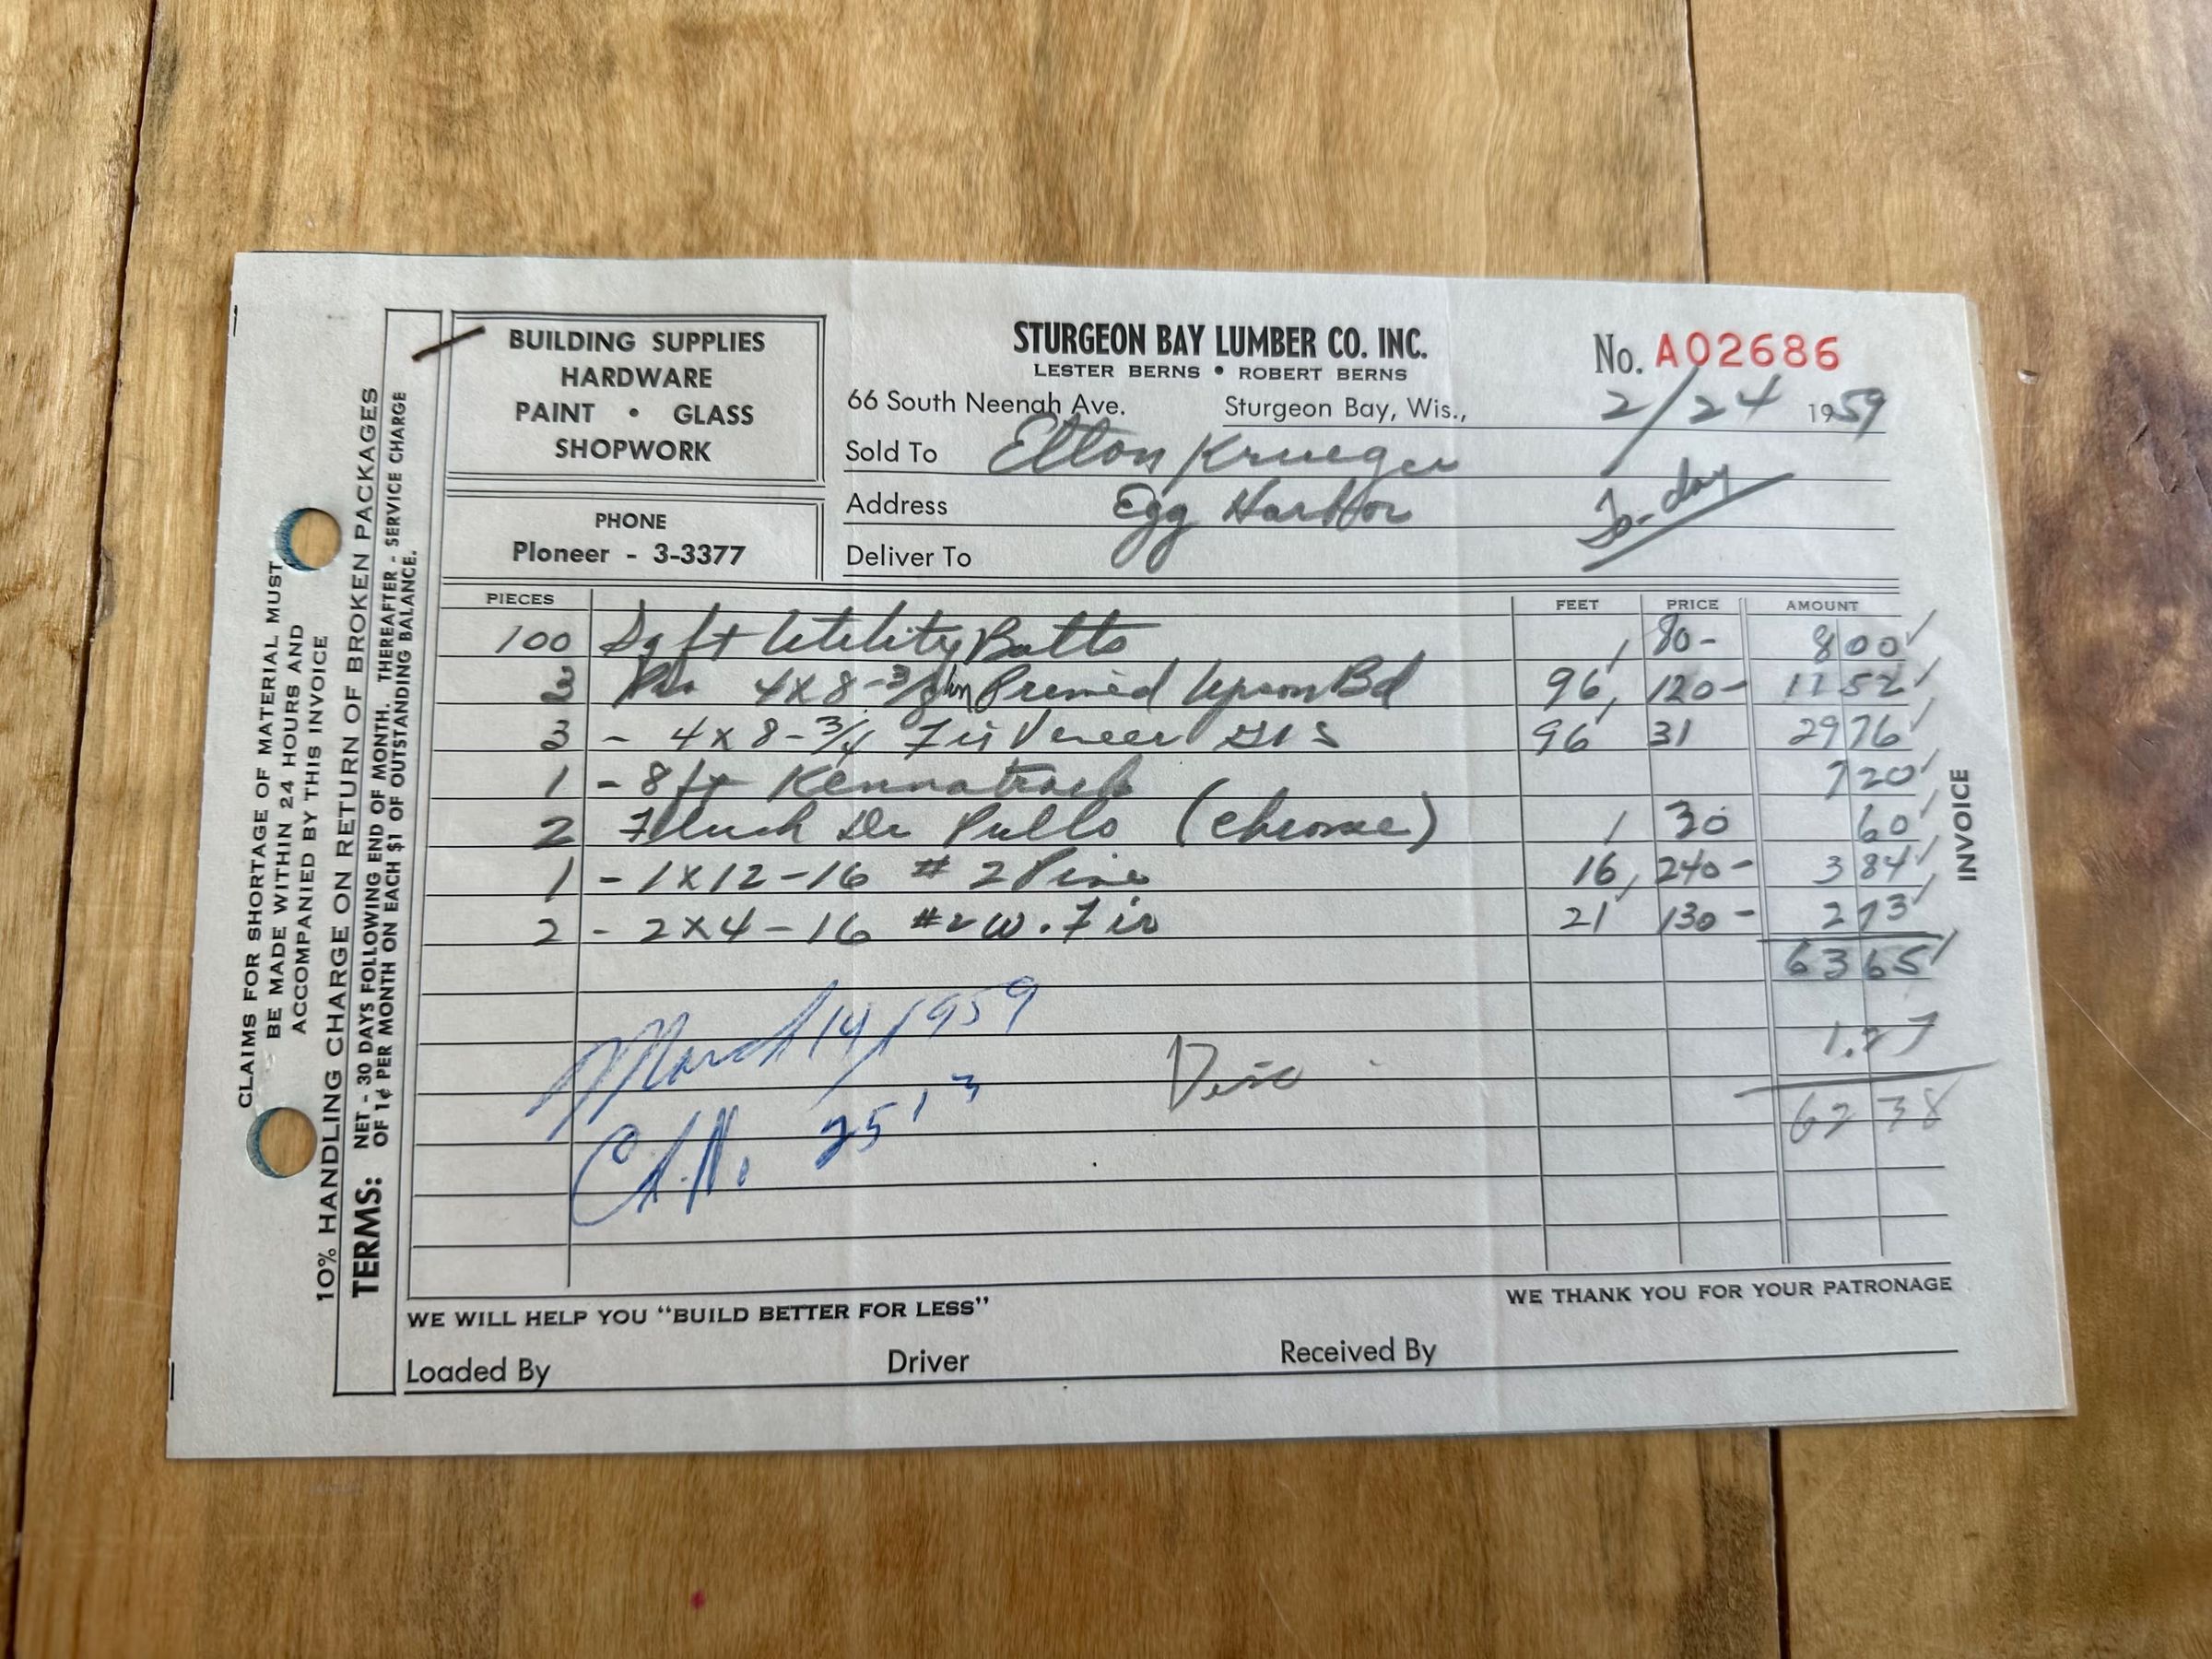 BUILDING SUPPLIES
HARDWARE
PAINT • GLASS
SHOPWORK
PHONE
PIoneer - 3-3377
STURGEON BAY LUMBER CO. INC.
LESTER BERNS • ROBERT BERNS
No. A02686
66 South Neenah Ave. Sturgeon Bay, Wis., 2/24 1959
Sold To Elton Krueger
Address Egg Harbor
To-day
Deliver To
PIECES FEET PRICE AMOUNT
100 Sq ft Utility Batts 80- 8 00
3 4x8-3/8 Primed Upson Bd 96 120- 11 52
3 - 4x8-3/4 Fir Veneer G1S 96 31 29 76
1 - 8 ft Kennatrack 7 20
2 Flush Dr Pulls (chrome) 30 60
1 - 1x12-16 #2 Pine 16 240- 3 84
2 - 2x4-16 #2 W. Fir 21 130- 2 73
63 65
March 14, 1959
Disc 1.27
62 38
Ch.N. 2513
WE WILL HELP YOU "BUILD BETTER FOR LESS"
WE THANK YOU FOR YOUR PATRONAGE
Loaded By Driver Received By
CLAIMS FOR SHORTAGE OF MATERIAL MUST
BE MADE WITHIN 24 HOURS AND
ACCOMPANIED BY THIS INVOICE
10% HANDLING CHARGE ON RETURN OF BROKEN PACKAGES
TERMS: NET - 30 DAYS FOLLOWING END OF MONTH. THEREAFTER - SERVICE CHARGE
OF 1¢ PER MONTH ON EACH $1 OF OUTSTANDING BALANCE.
INVOICE